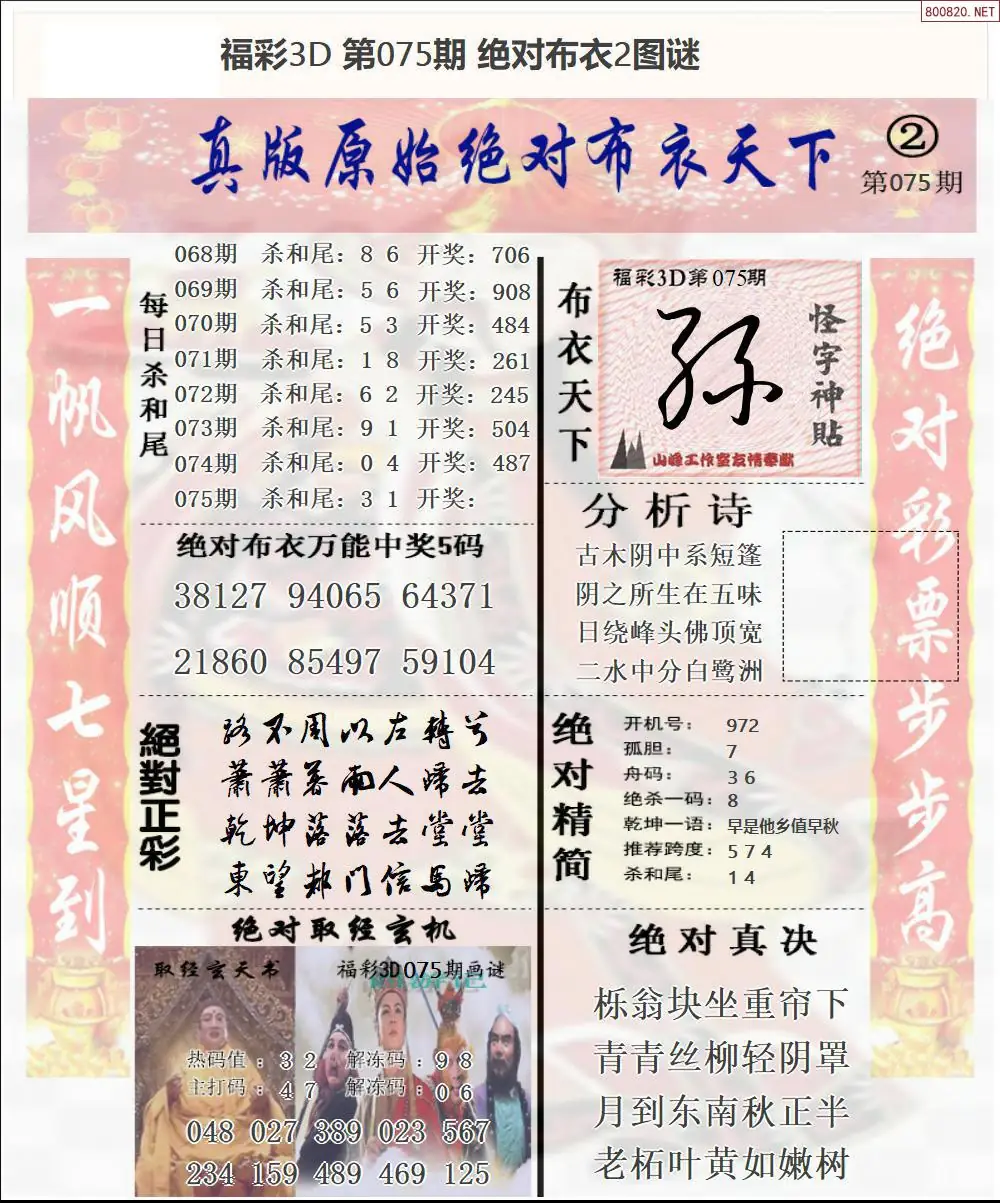 800820.NET
福彩3D 第075期 绝对布衣2图谜
真版原始绝对布衣天下
②
第075期
一帆风顺七星到
每日杀和尾
068期 杀和尾：8 6 开奖：706
069期 杀和尾：5 6 开奖：908
070期 杀和尾：5 3 开奖：484
071期 杀和尾：1 8 开奖：261
072期 杀和尾：6 2 开奖：245
073期 杀和尾：9 1 开奖：504
074期 杀和尾：0 4 开奖：487
075期 杀和尾：3 1 开奖：
绝对布衣万能中奖5码
38127 94065 64371
21860 85497 59104
絕對正彩
路不周以左轉兮
蕭蕭暮雨人歸去
乾坤落落去堂堂
東望都门信馬歸
绝对取经玄机
取经玄天书
福彩3D075期画谜
热码值：3 2 解冻码：9 8
主打码：4 7 解冻码：0 6
048 027 389 023 567
234 159 489 469 125
布衣天下
福彩3D第075期
孙
怪字神貼
山峰工作室友情奉献
分析诗
古木阴中系短篷
阴之所生在五味
日绕峰头佛顶宽
二水中分白鹭洲
绝对精简
开机号： 972
孤胆： 7
舟码： 3 6
绝杀一码：8
乾坤一语：早是他乡值早秋
推荐跨度：5 7 4
杀和尾： 1 4
绝对真决
栎翁块坐重帘下
青青丝柳轻阴罩
月到东南秋正半
老柘叶黄如嫩树
绝对彩票步步高